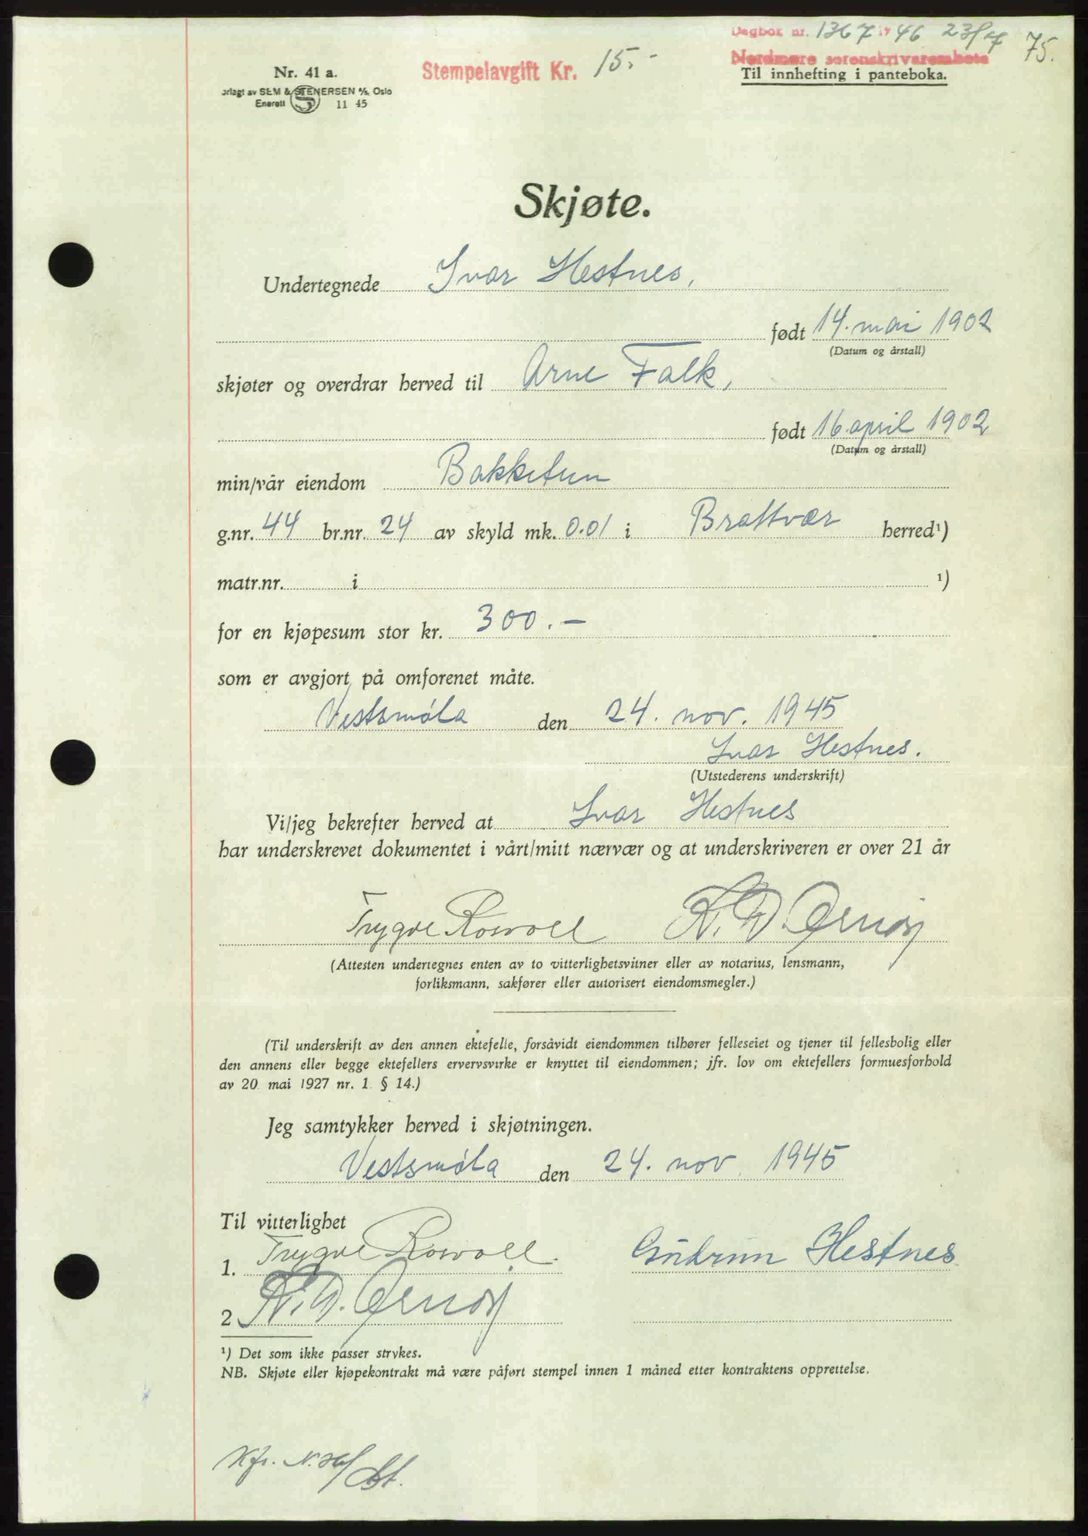 Dagbok nr. 1367 19 46 23/7 75.
Stempelavgift Kr. 15.-
Nordmøre sorenskriverembete
Nr. 41 a.
Til innhefting i panteboka.
orlagt av SEM & STENERSEN A/S, Oslo
Enerett S 11 45
Skjøte.
Undertegnede Ivar Hestnes,
født 14. mai 1902
(Datum og årstall)
skjøter og overdrar herved til Arne Falk,
født 16. april 1902
(Datum og årstall)
min/vår eiendom Bakketun
g.nr. 44 br.nr. 24 av skyld mk. 0.01 i Brattvær herred¹)
matr.nr. i ¹)
for en kjøpesum stor kr. 300.-
som er avgjort på omforenet måte.
Vestsmøla den 24. nov. 1945
Ivar Hestnes.
(Utstederens underskrift)
Vi/jeg bekrefter herved at Ivar Hestnes
har underskrevet dokumentet i vårt/mitt nærvær og at underskriveren er over 21 år
Trygve Rosvoll
(Attesten undertegnes enten av to vitterlighetsvitner eller av notarius, lensmann,
forliksmann, sakfører eller autorisert eiendomsmegler.)
(Til underskrift av den annen ektefelle, forsåvidt eiendommen tilhører felleseiet og tjener til fellesbolig eller
den annens eller begge ektefellers ervervsvirke er knyttet til eiendommen; jfr. lov om ektefellers formuesforhold
av 20 mai 1927 nr. 1 § 14.)
Jeg samtykker herved i skjøtningen.
Vestsmøla den 24. nov 1945
Til vitterlighet
1. Trygve Rosvoll. Gudrun Hestnes
2
¹) Det som ikke passer strykes.
NB. Skjøte eller kjøpekontrakt må være påført stempel innen 1 måned etter kontraktens opprettelse.
Kfr.